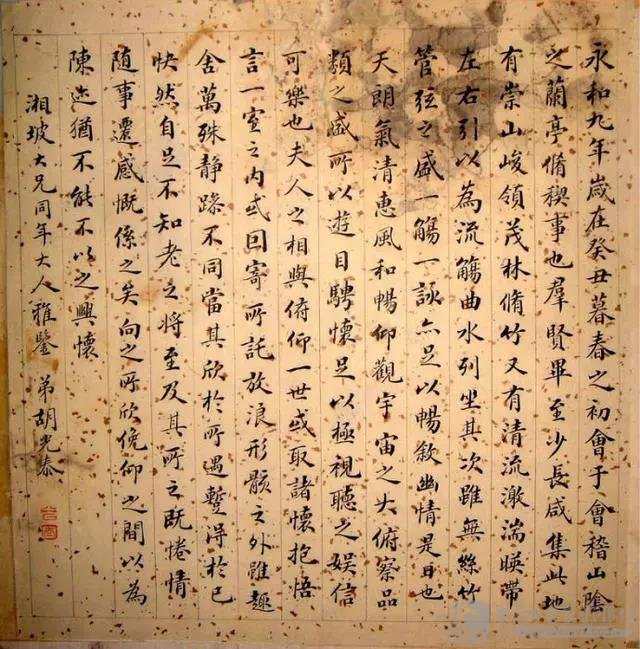 永和九年歲在癸丑暮春之初會于會稽山陰
之蘭亭脩稧事也羣賢畢至少長咸集此地
有崇山峻領茂林脩竹又有清流激湍暎帶
左右引以為流觴曲水列坐其次雖無絲竹
管弦之盛一觴一詠亦足以暢敘幽情是日也
天朗氣清惠風和暢仰觀宇宙之大俯察品
類之盛所以遊目騁懷足以極視聽之娛信
可樂也夫人之相與俯仰一世或取諸懷抱悟
言一室之內或因寄所託放浪形骸之外雖趣
舍萬殊静躁不同當其欣於所遇蹔得於己
怏然自足不知老之將至及其所之既惓情
随事遷感慨係之矣向之所欣俛仰之間以為
陳迹猶不能不以之興懷
湘坡大兄同年大人雅鑒 弟胡光泰